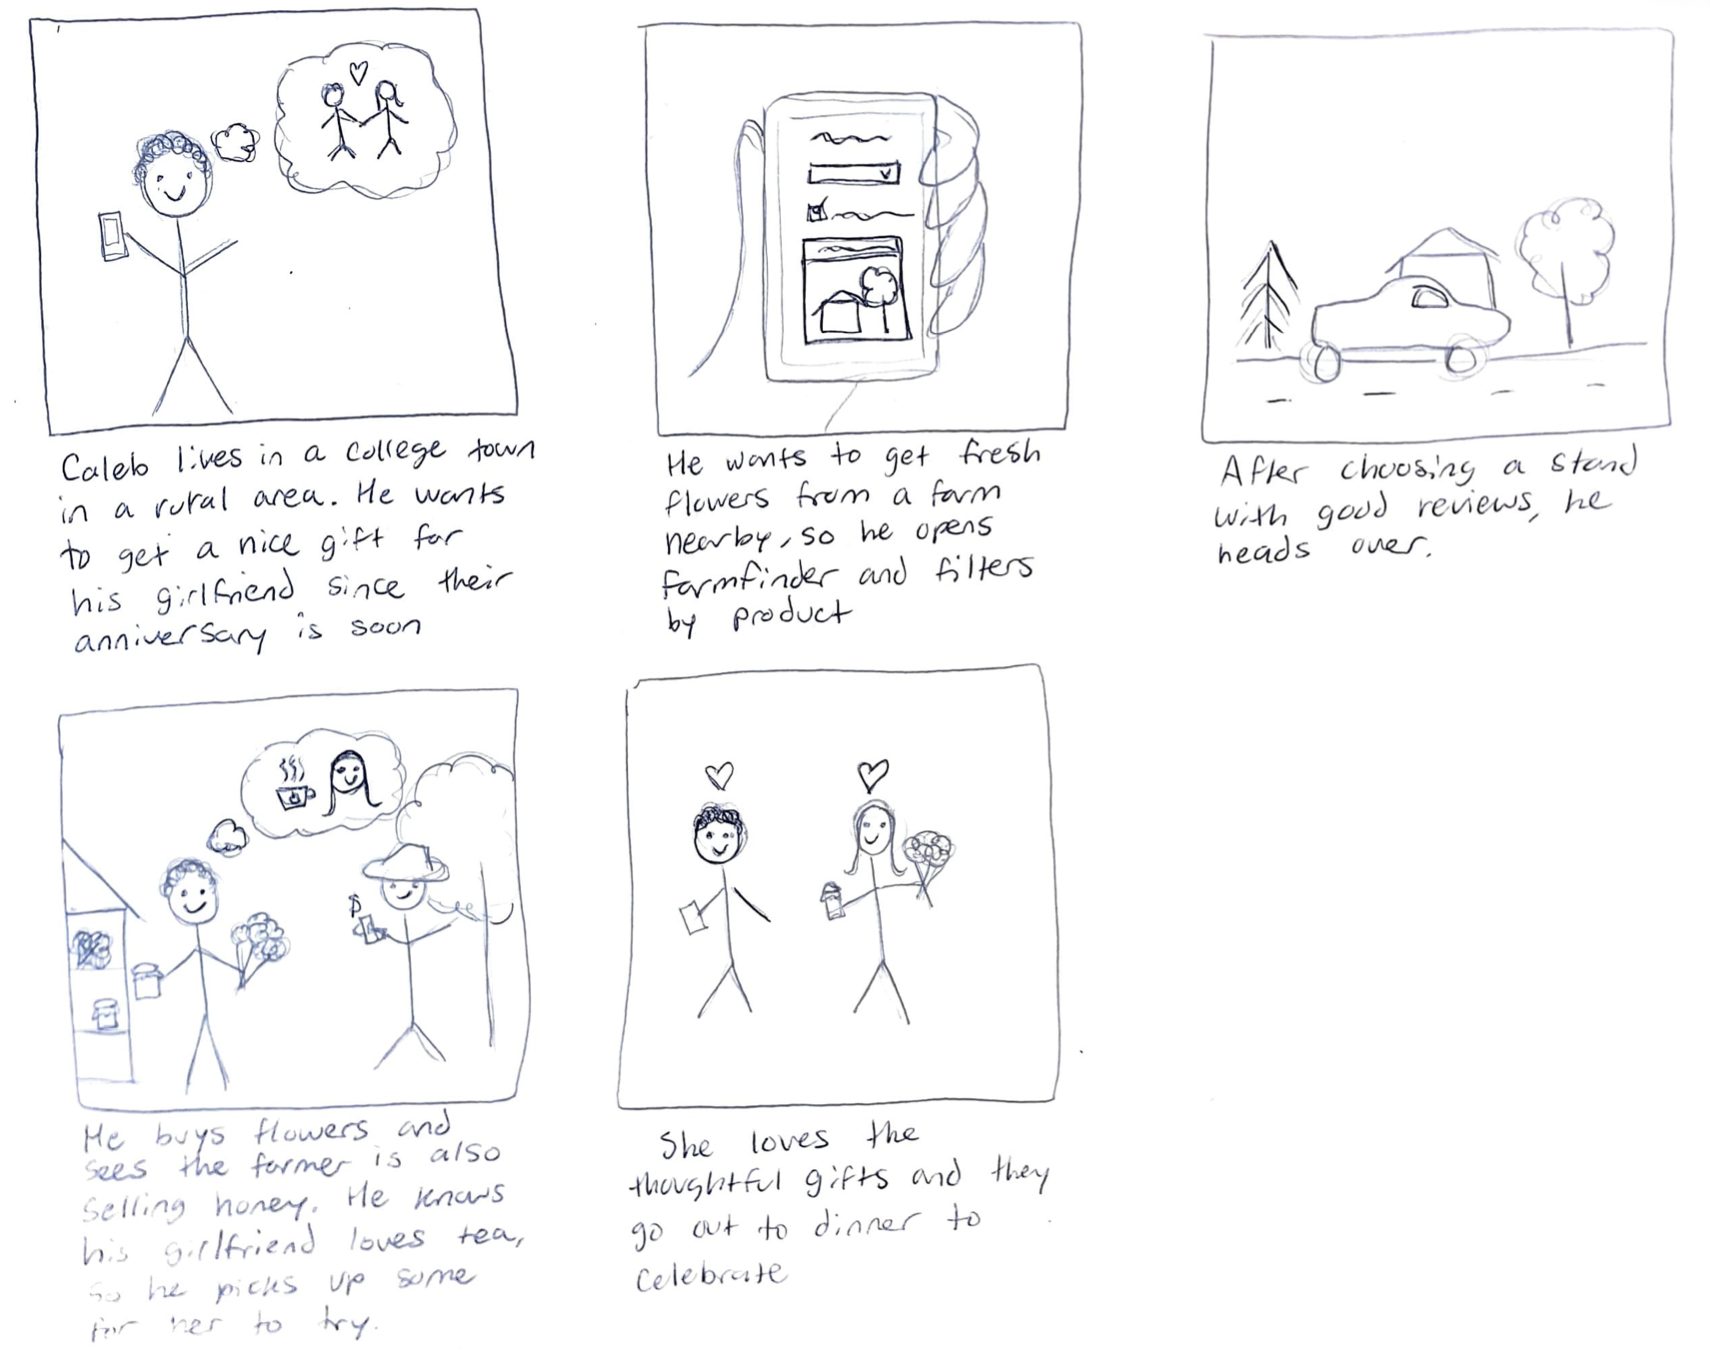 Caleb lives in a college town
in a rural area. He wants
to get a nice gift for
his girlfriend since their
anniversary is soon
He wants to get fresh
flowers from a farm
nearby, so he opens
farmfinder and filters
by product
After choosing a stand
with good reviews, he
heads over.
$
He buys flowers and
sees the farmer is also
selling honey. He knows
his girlfriend loves tea,
so he picks up some
for her to try.
She loves the
thoughtful gifts and they
go out to dinner to
celebrate